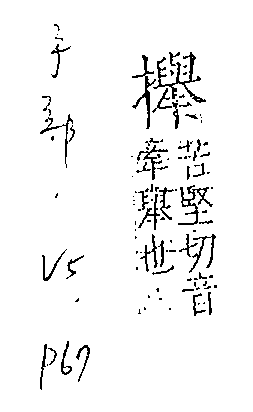 攑
苦堅切音
牽舉也
手部.V5.P67